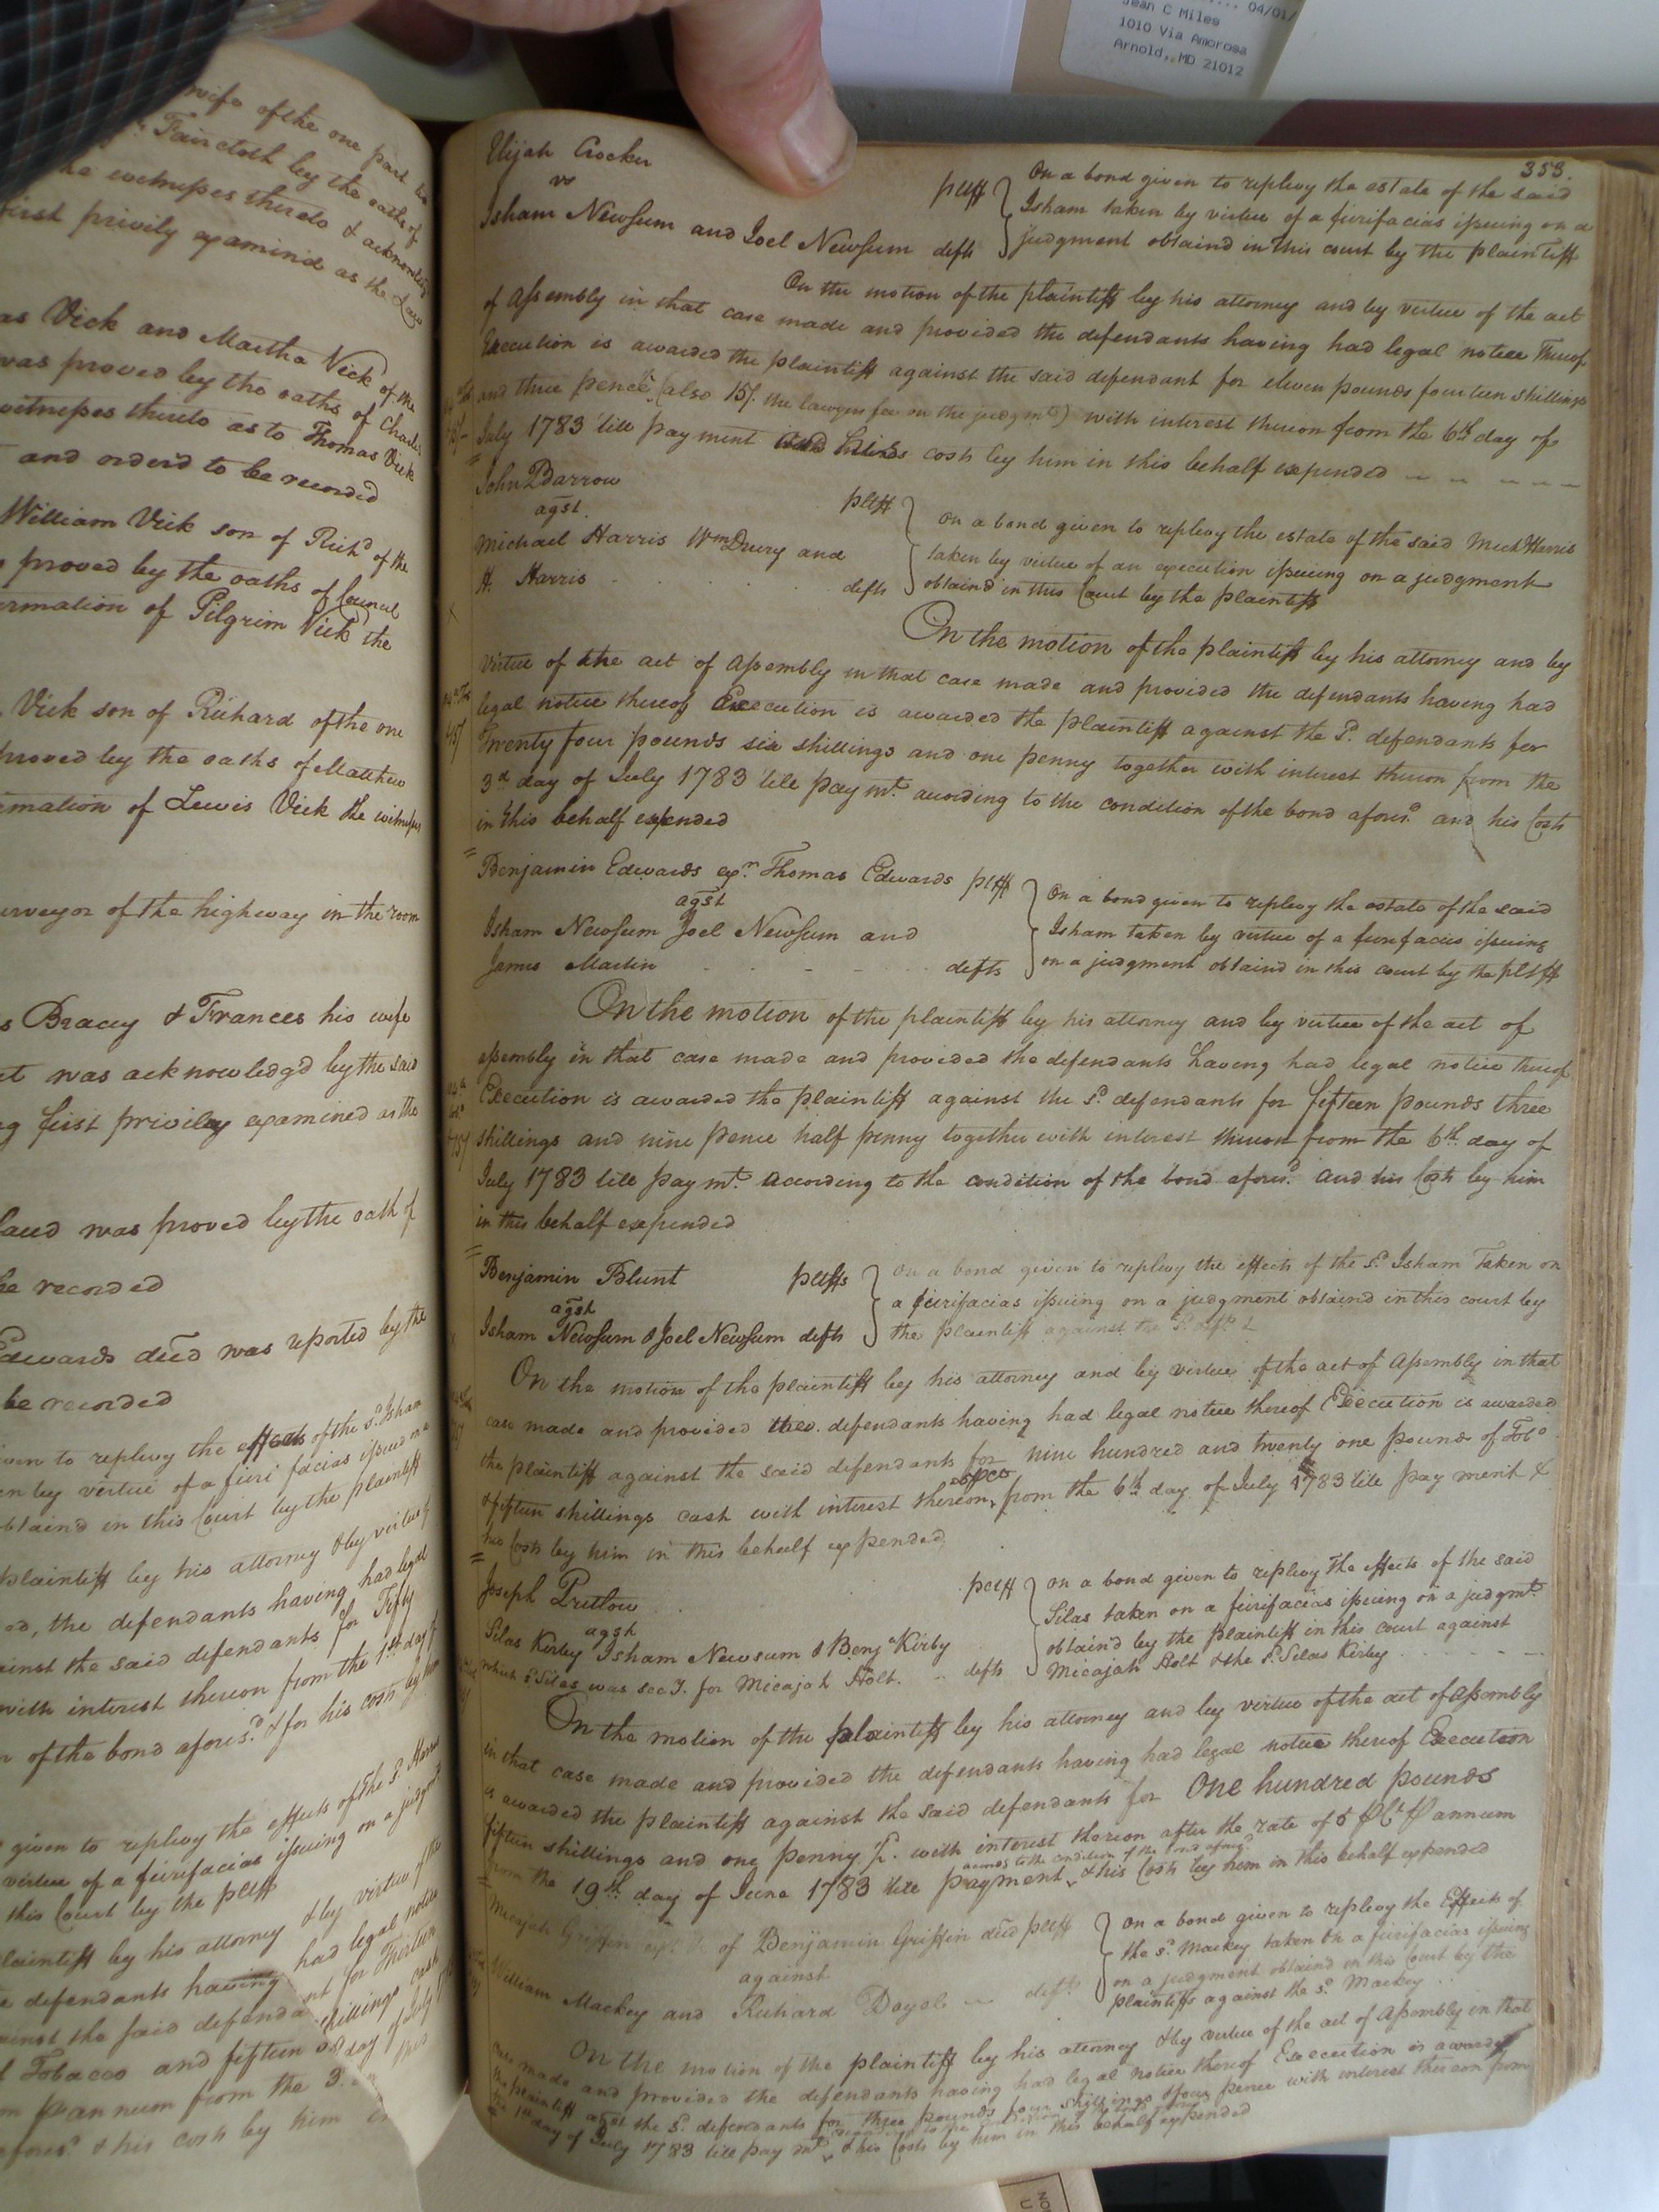 04/01/
Jean C Miles
1010 Via Amorosa
Arnold, MD 21012
wife of the one part to
Faircloth by the oaths of
the witnesses thereto & acknowledg
first privily examined as the Law
as Vick and Martha Vick of the
was proved by the oaths of Charles
witnesses thereto as to Thomas Vick
and orderd to be recorded
William Vick son of Richd of the
proved by the oaths of Council
irmation of Pilgrim Vick the
Vick son of Richard of the one
proved by the oaths of Matthew
rmation of Lewis Vick the witness
urveyor of the highway in the room
s Bracey & Frances his wife
et was acknowledg'd by the said
g first priviley examined as the
laud was proved by the oath of
be recorded
Edwards decd was reported by the
be recorded
iven to replevy the effects of the sd. Isham
en by virtue of a fieri facias issued on a
obtaind in this Court by the plaintiff
plaintiff by his attorney & by virtue of
ed, the defendants having had legal
ainst the said defendants for Fifty
with interest thereon from the 1st day of
n of the bond aforesd. & for his costs by him
given to replevy the effects of the sd.
virtue of a fierifacias issuing on a judgmt
this Court by the pltff
plaintiff by his attorney & by virtue of the
e defendants having had legal notice
ainst the said defendant for Thirteen
d Tobacco and fifteen shillings cash
m pr annum from the 3.d day of July
aforesd. & his costs by him in this
353.
Elijah Crocker pltff
vs
Isham Newsum and Joel Newsum defts
On a bond given to replevy the estate of the said
Isham taken by virtue of a fierifacias issuing on a
judgment obtaind in this court by the plaintiff
On the motion of the plaintiff by his attorney and by virtue of the act
of Assembly in that case made and provided the defendants having had legal notice Thereof
Execution is awarded the plaintiff against the said defendant for eleven pounds fourteen shillings
and three pence (also 15/. the lawyers fee on the judgmt) with interest thereon from the 6th day of
July 1783 till payment and his costs by him in this behalf expended
John Barrow pltff
agst.
Michael Harris Wm Drury and
H. Harris defts
On a bond given to replevy the estate of the said Michl Harris
taken by virtue of an execution issuing on a judgment
obtaind in this Court by the plaintiff
On the motion of the plaintiff by his attorney and by
virtue of the act of Assembly in that case made and provided the defendants having had
legal notice thereof Execution is awarded the plaintiff against the Sd. defendants for
Twenty four pounds six shillings and one penny together with interest thereon from the
3d day of July 1783 till paymt. according to the condition of the bond aforesd. and his Costs
in this behalf expended
Benjamin Edwards exr. Thomas Edwards pltff
agst
Isham Newsum Joel Newsum and
James Martin defts
On a bond given to replevy the estate of the said
Isham taken by virtue of a fierifacias issuing
on a judgment obtaind in this court by the pltff
On the motion of the plaintiff by his attorney and by virtue of the act of
assembly in that case made and provided the defendants having had legal notice thereof
Execution is awarded the plaintiff against the sd. defendants for fifteen pounds three
shillings and nine pence half penny together with interest thereon from the 6th. day of
July 1783 till paymt. According to the condition of the bond aforesd. And his Costs by him
in this behalf expended
Benjamin Blunt pltffs
agst
Isham Newsum & Joel Newsum defts
On a bond given to replevy the effects of the Sd. Isham Taken on
a fierifacias issuing on a judgment obtaind in this court by
the plaintiff against the Sd. deft.
On the motion of the plaintiff by his attorney and by virtue of the act of Assembly in that
case made and provided the defendants having had legal notice thereof Execution is awarded
the plaintiff against the said defendants for nine hundred and twenty one pounds of Tobo
& fifteen shillings cash with interest thereon from the 6th day of July 1783 till payment &
his Costs by him in this behalf expended
Joseph Prutlow pltff
agst
Silas Kirby Isham Newsum & Benja Kirby
which sd Silas was secy. for Micajah Holt. defts
On a bond given to replevy the effects of the said
Silas taken on a fierifacias issuing on a judgmt.
obtain'd by the plaintiff in this court against
Micajah Holt & the sd. Silas Kirby
On the motion of the plaintiff by his attorney and by virtue of the act of Assembly
in that case made and provided the defendants having had legal notice thereof Execution
is awarded the plaintiff against the said defendants for One hundred pounds
fifteen shillings and one penny with interest thereon after the rate of 5 pr Ct pr annum
from the 19th day of June 1783 till payment & his Costs by him in this behalf expended
Micajah Griffin of Benjamin Griffin decd pltff
against
William Mackey and Richard Doyel defts
On a bond given to replevy the Effects of
the sd. Mackey taken on a fierifacias issuing
on a judgment obtaind in this Court by the
plaintiffs against the sd. Mackey
On the motion of the plaintiff by his attorney & by virtue of the act of Assembly in that
case made and provided the defendants having had legal notice thereof Execution is awarded
the plaintiff agst the sd. defendants for three pounds four shillings & four pence with interest thereon from
the 1st day of July 1783 till paymt. & his Costs by him in this behalf expended